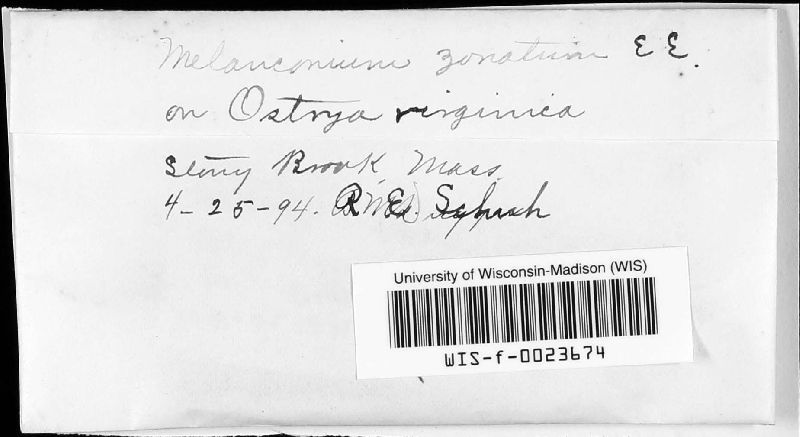 Melanconium zonatum E E.
on Ostrya virginica
Stony Brook, Mass.
4-25-94.
University of Wisconsin-Madison (WIS)
WIS-f-0023674